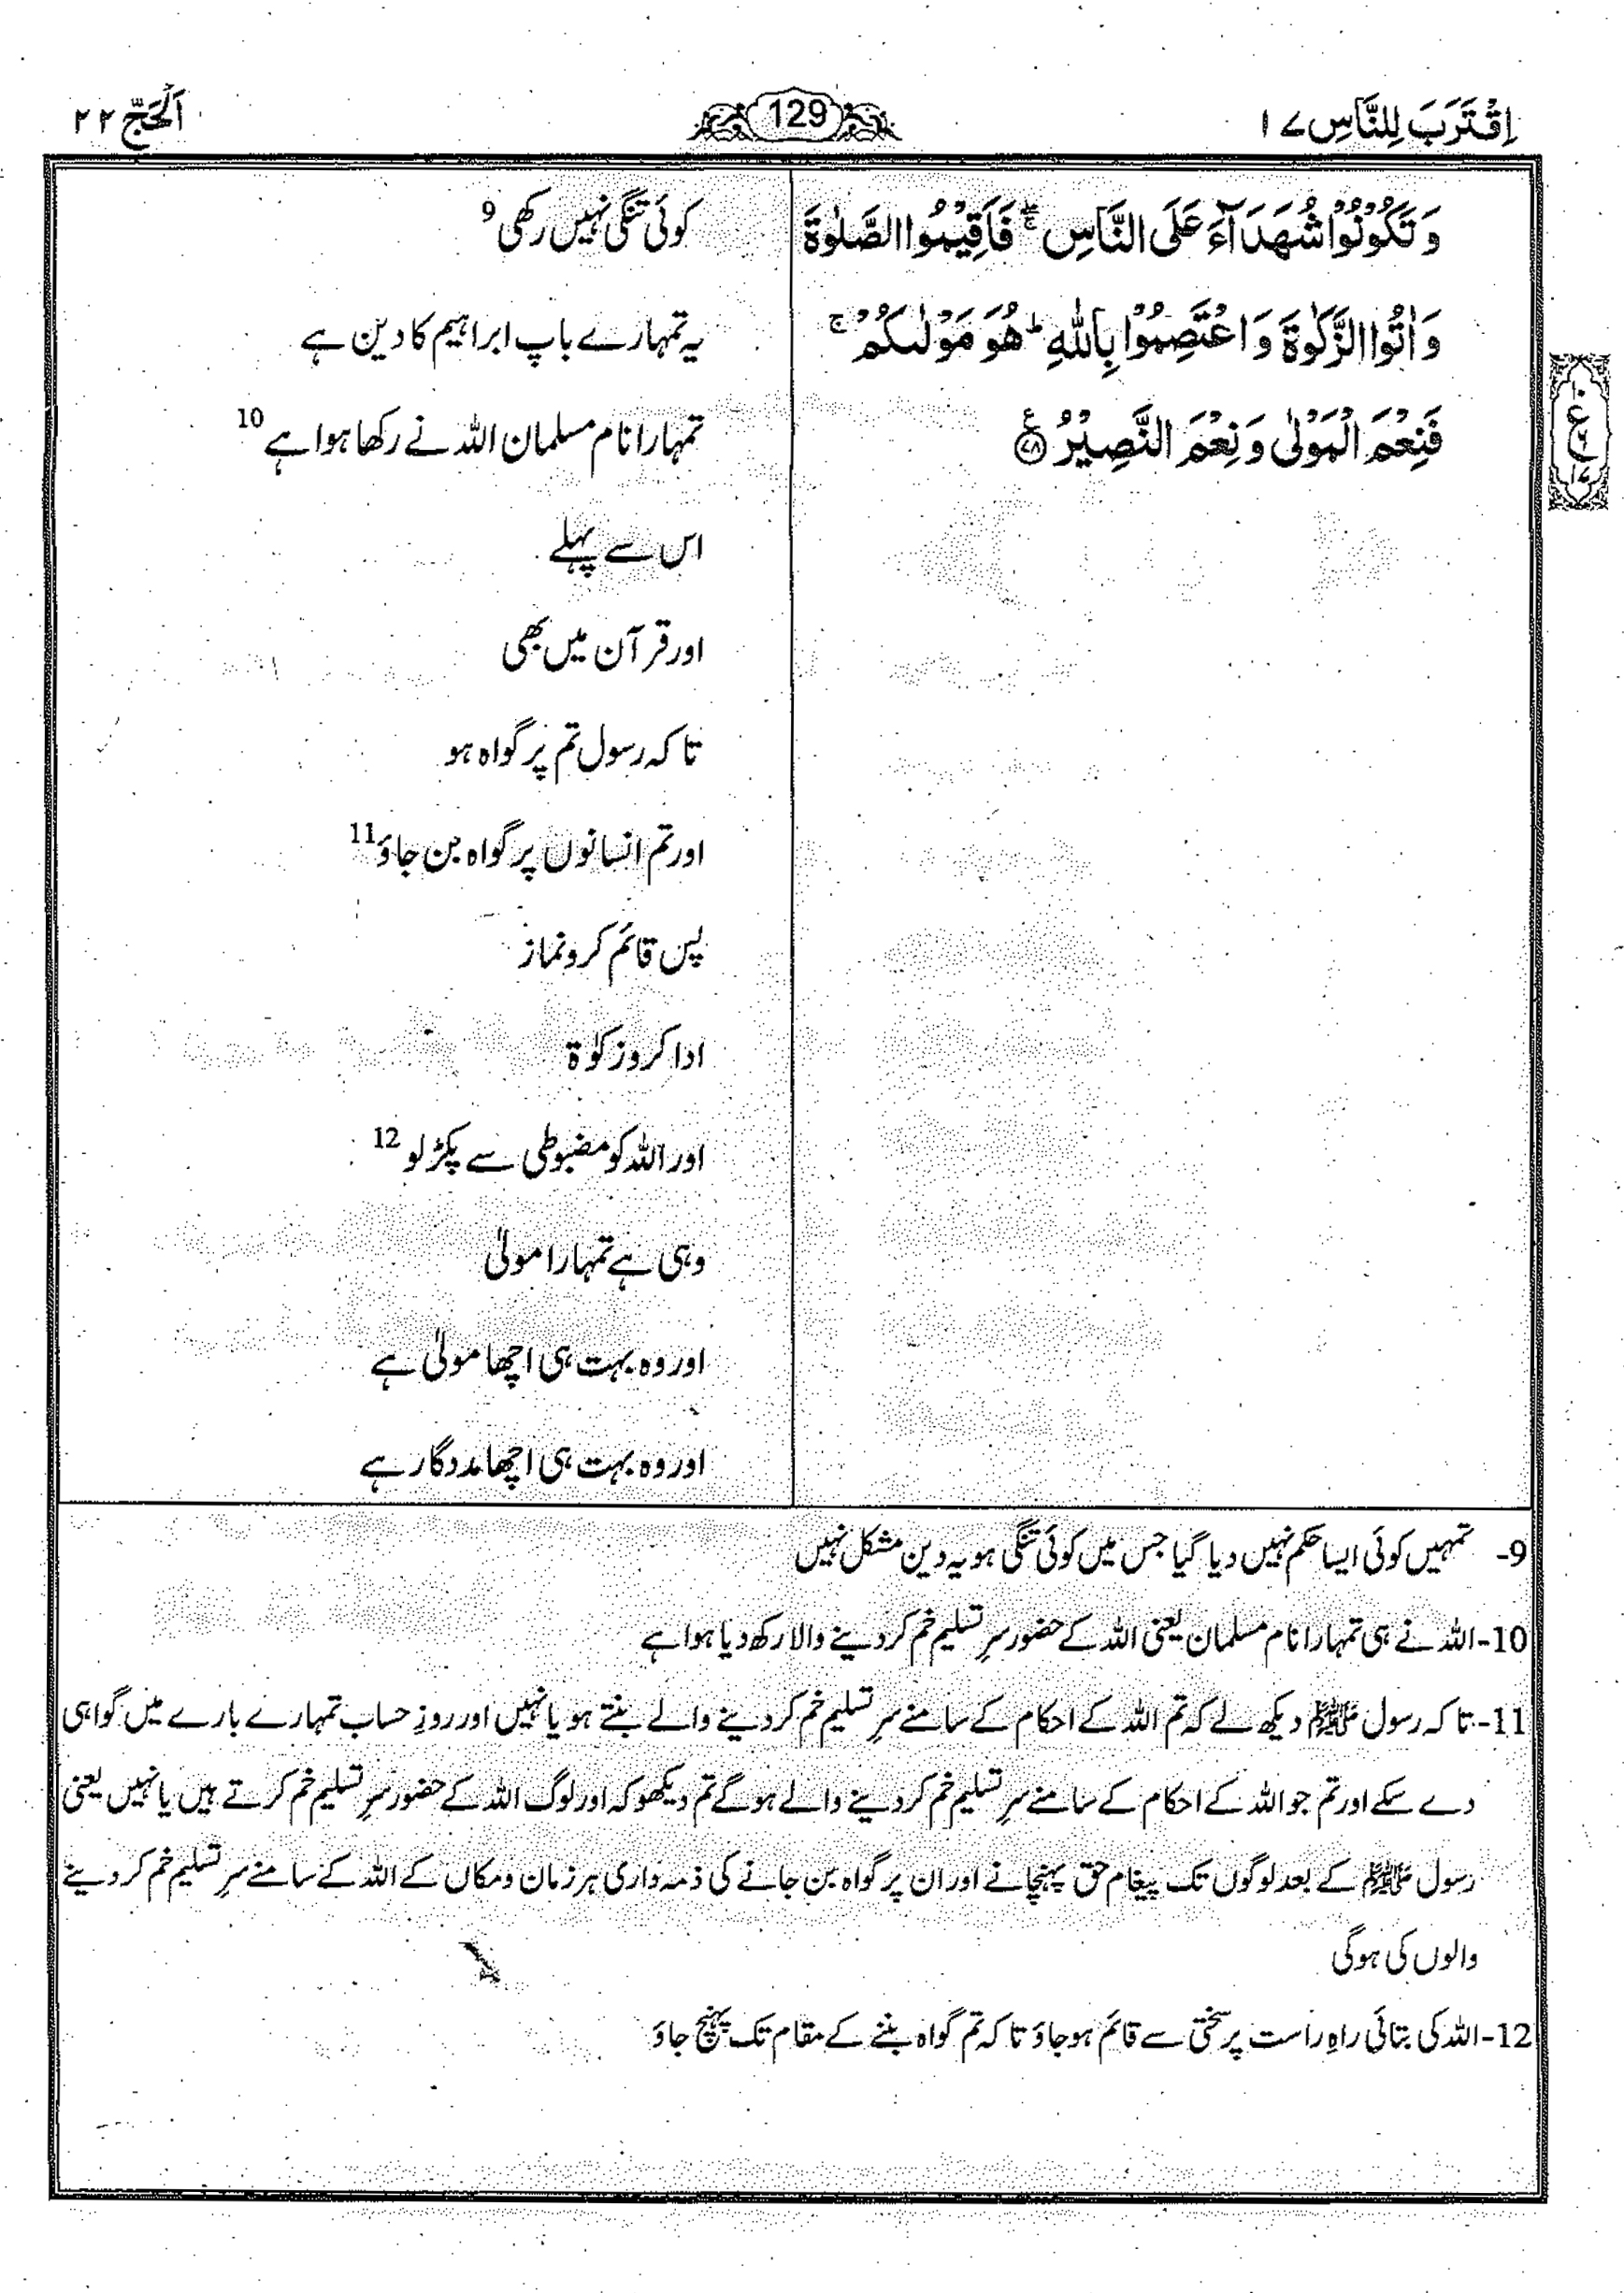 اِقْتَرَبَ لِلنَّاسِ ۱۷
129
اَلْحَجّ ۲۲
وَ تَكُوْنُوْا شُهَدَآءَ عَلَى النَّاسِ ۖۚ فَاَقِيْمُوا الصَّلٰوةَ
وَ اٰتُوا الزَّكٰوةَ وَ اعْتَصِمُوْا بِاللّٰهِ ؕ هُوَ مَوْلٰىكُمْ ۚ
فَنِعْمَ الْمَوْلٰى وَ نِعْمَ النَّصِيْرُ ۧ ﴿۷۸﴾
ع
۱۷
کوئی تنگی نہیں رکھی 9
یہ تمہارے باپ ابراہیم کا دین ہے
تمہارا نام مسلمان اللہ نے رکھا ہوا ہے 10
اس سے پہلے
اور قرآن میں بھی
تاکہ رسول تم پر گواہ ہو
اور تم انسانوں پر گواہ بن جاؤ 11
پس قائم کرو نماز
ادا کرو زکوٰۃ
اور اللہ کو مضبوطی سے پکڑ لو 12
وہی ہے تمہارا مولیٰ
اور وہ بہت ہی اچھا مولیٰ ہے
اور وہ بہت ہی اچھا مددگار ہے
9- تمہیں کوئی ایسا حکم نہیں دیا گیا جس میں کوئی تنگی ہو یہ دین مشکل نہیں
10- اللہ نے ہی تمہارا نام مسلمان یعنی اللہ کے حضور سرِ تسلیم خم کر دینے والا رکھ دیا ہوا ہے
11- تاکہ رسول ﷺ دیکھ لے کہ تم اللہ کے احکام کے سامنے سرِ تسلیم خم کر دینے والے بنتے ہو یا نہیں اور روزِ حساب تمہارے بارے میں گواہی
دے سکے اور تم جو اللہ کے احکام کے سامنے سرِ تسلیم خم کر دینے والے ہو گے تم دیکھو کہ اور لوگ اللہ کے حضور سرِ تسلیم خم کرتے ہیں یا نہیں یعنی
رسول ﷺ کے بعد لوگوں تک پیغام حق پہنچانے اور ان پر گواہ بن جانے کی ذمہ داری ہر زمان و مکاں کے اللہ کے سامنے سرِ تسلیم خم کر دینے
والوں کی ہو گی
12- اللہ کی بتائی راہِ راست پر سختی سے قائم ہو جاؤ تاکہ تم گواہ بننے کے مقام تک پہنچ جاؤ